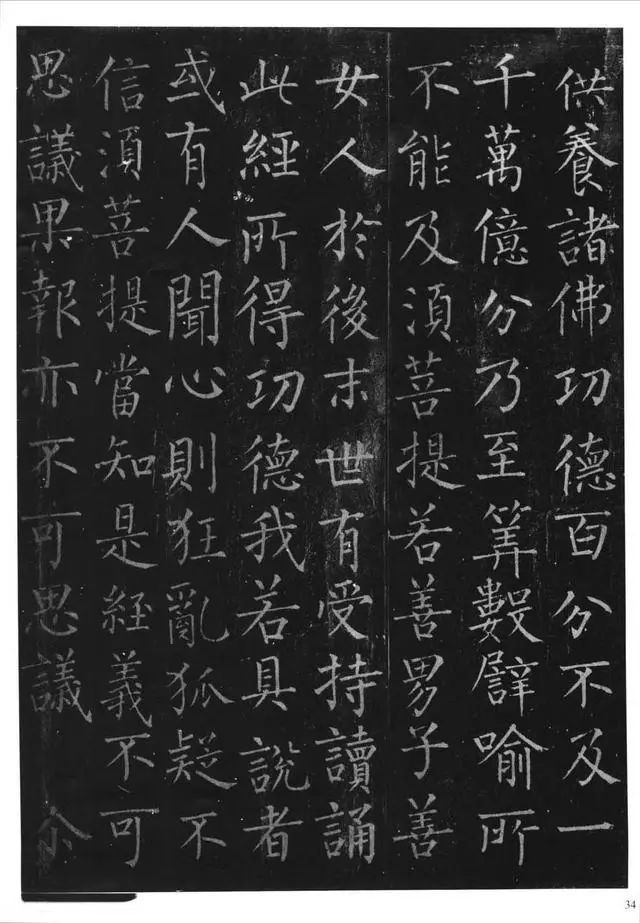 供養諸佛功德百分不及一
千萬億分乃至筭數譬喻所
不能及須菩提若善男子善
女人於後末世有受持讀誦
此經所得功德我若具說者
或有人聞心則狂亂狐疑不
信須菩提當知是經義不可
思議果報亦不可思議 尒
34